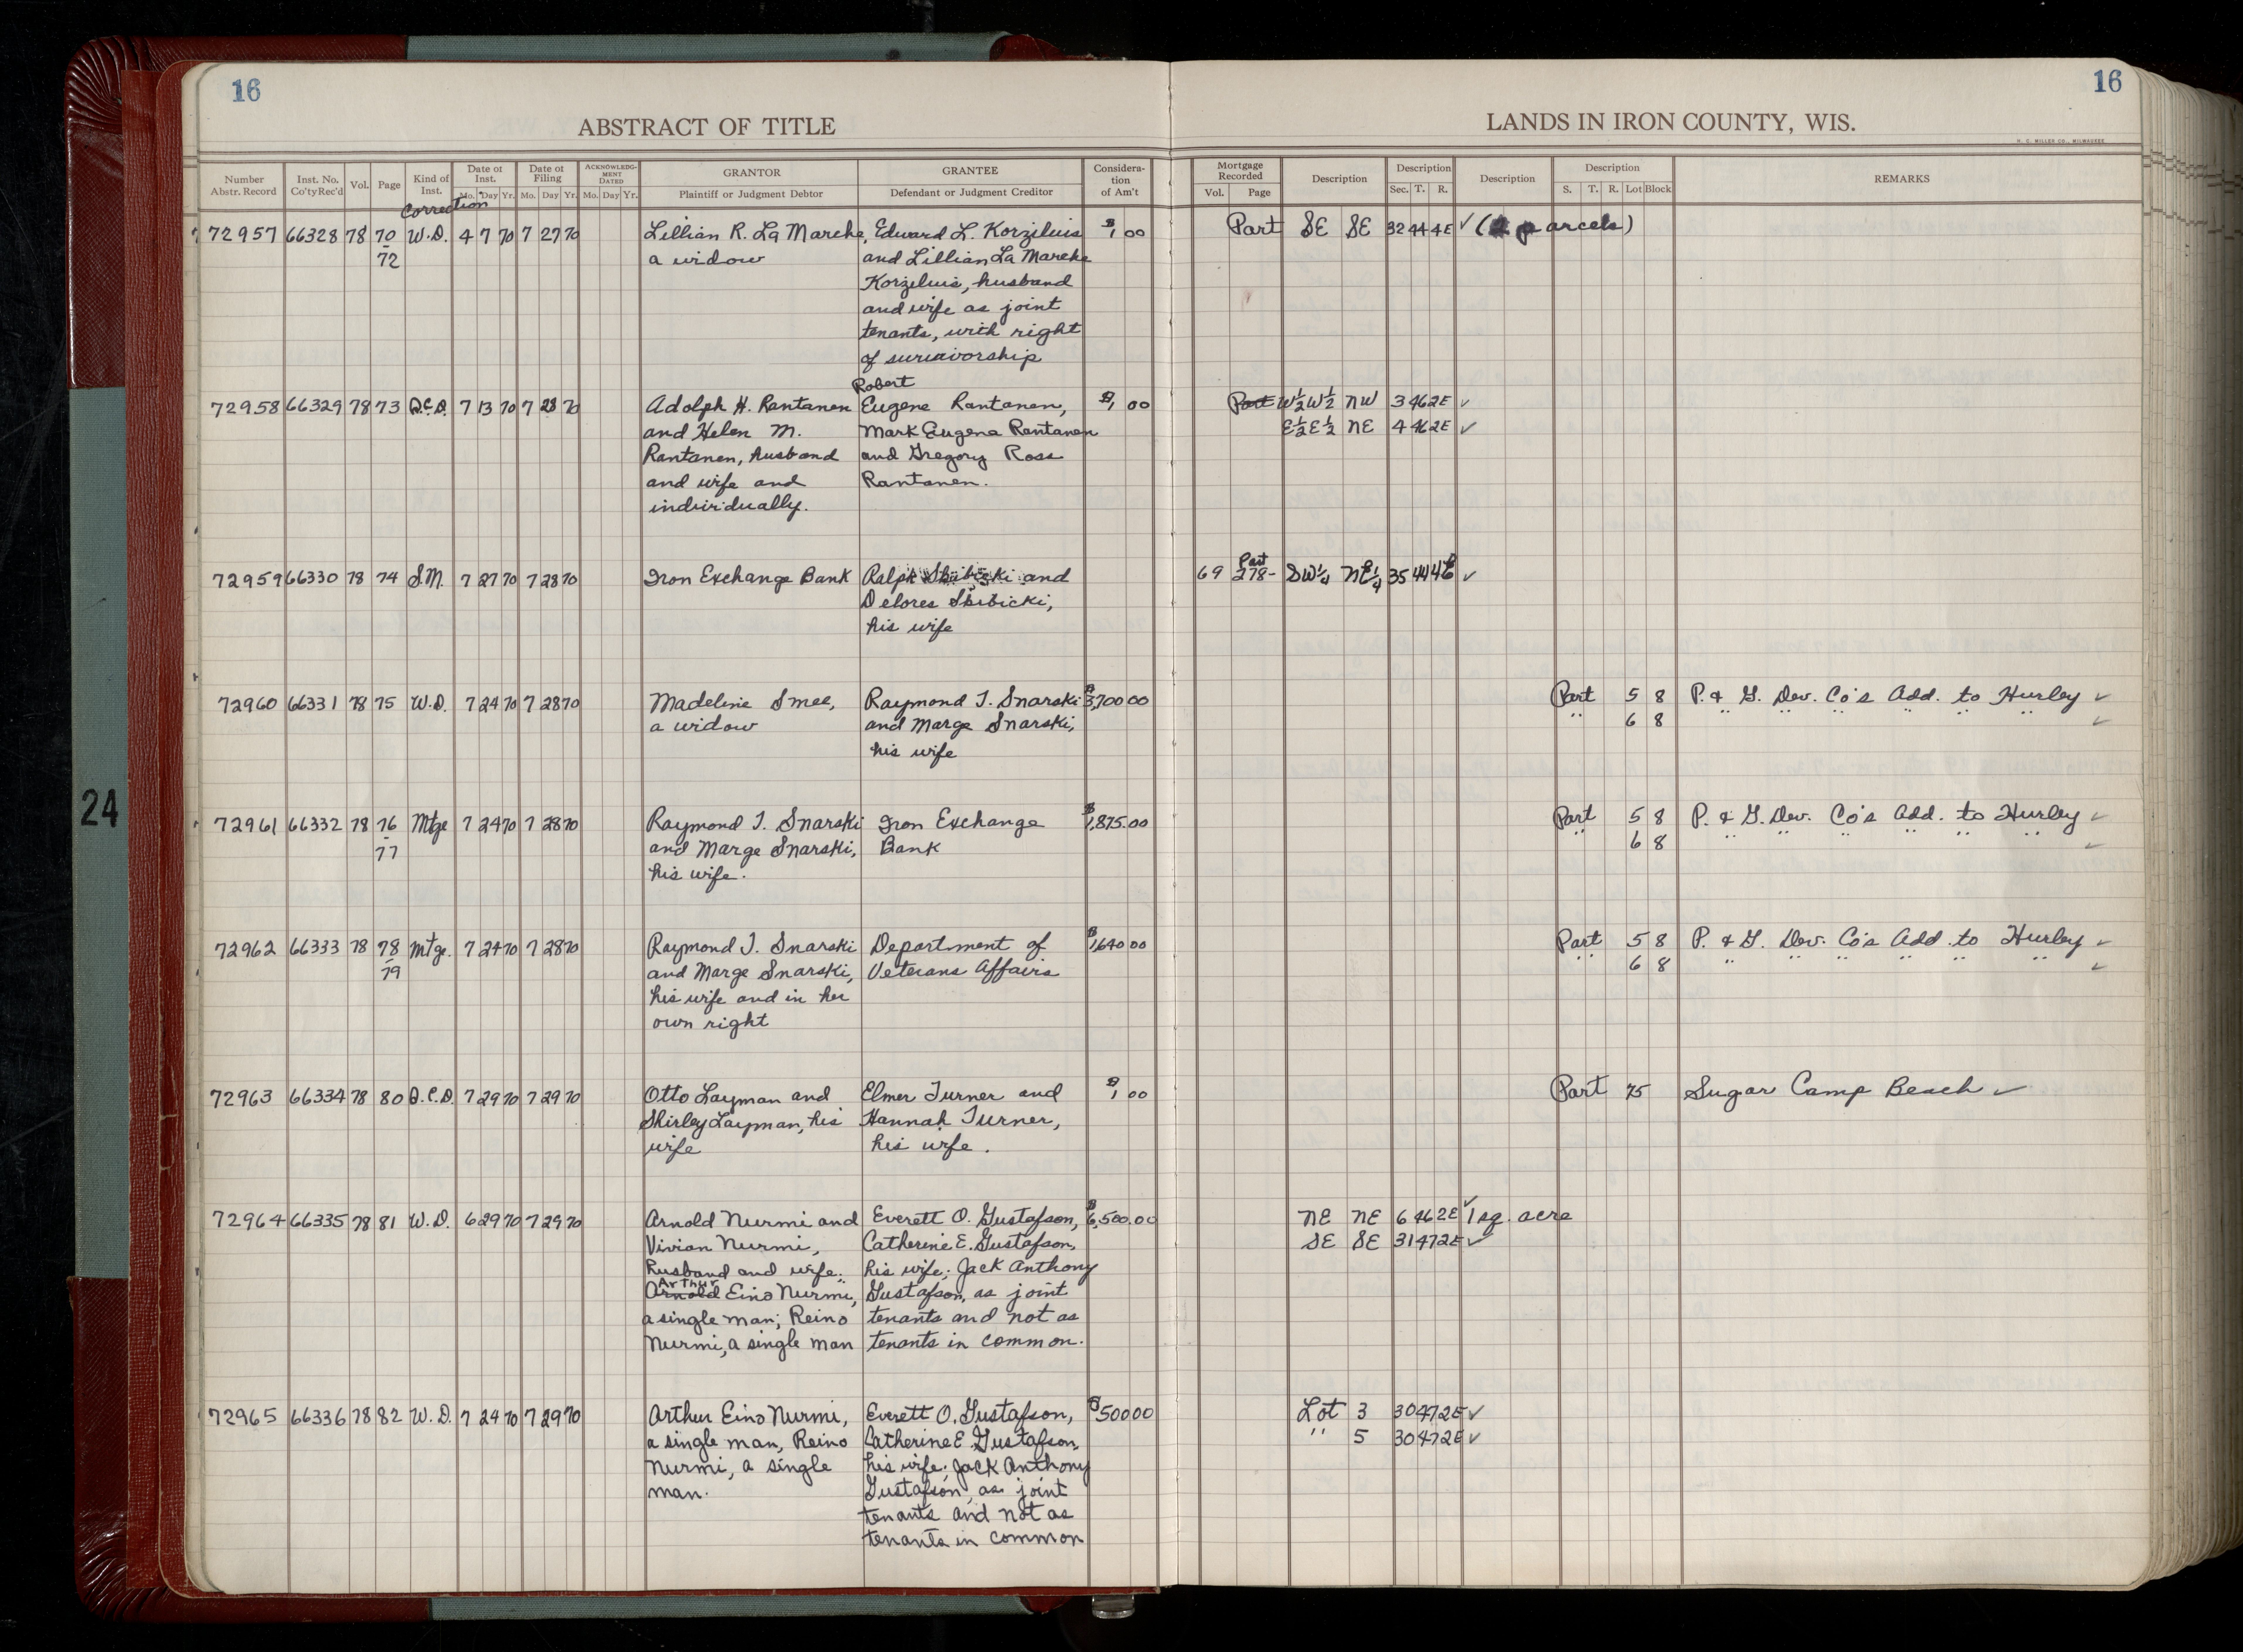 16
16
ABSTRACT OF TITLE
LANDS IN IRON COUNTY, WIS.
H. C. MILLER CO., MILWAUKEE
Number Abstr. Record | Inst. No. Co'ty Rec'd | Vol. | Page | Kind of Inst. | Date of Inst. Mo. Day Yr. | Date of Filing Mo. Day Yr. | ACKNOWLEDGMENT DATED Mo. Day Yr. | GRANTOR Plaintiff or Judgment Debtor | GRANTEE Defendant or Judgment Creditor | Consideration of Am't | Mortgage Recorded Vol. Page | Description | Description Sec. T. R. | Description | Description S. T. R. Lot Block | REMARKS
Correction
72957 66328 78 70 W.D. 4 7 70 7 27 70 Lillian R. La Marche, Edward L. Korziluis $1,00 Part SE SE 32 44 4E ✓ ( parcels)
- 72 a widow and Lillian La Marche
Korziluis, husband
and wife as joint
tenants, with right
of survivorship
Robert
72958 66329 78 73 Q.C.D. 7 13 70 7 28 70 Adolph H. Rantanen Eugene Rantanen, $1, 00 Part W½W½ NW 3 46 2E ✓
and Helen M. Mark Eugene Rantanen E½E½ NE 4 46 2E ✓
Rantanen, husband and Gregory Ross
and wife and Rantanen.
individually.
Part
72959 66330 78 74 S.M. 7 27 70 7 28 70 Iron Exchange Bank Ralph Skibicki and 69 278- SW¼ NE¼ 35 44 4E ✓
Delores Skibicki,
his wife
72960 66331 78 75 W.D. 7 24 70 7 28 70 Madeline Smee, Raymond T. Snarski $3,700 00 Part 5 8 P. & G. Dev. Co's Add. to Hurley ✓
a widow and Marge Snarski, " 6 8 " " " " " " " ✓
his wife
72961 66332 78 76 Mtge 7 24 70 7 28 70 Raymond T. Snarski Iron Exchange $1,875.00 Part 5 8 P. & G. Dev. Co's Add. to Hurley ✓
- 77 and Marge Snarski, Bank " 6 8 " " " " " " ✓
his wife.
72962 66333 78 78 Mtge. 7 24 70 7 28 70 Raymond T. Snarski Department of $1,640 00 Part 5 8 P. & G. Dev. Co's Add. to Hurley ✓
- 79 and Marge Snarski, Veterans Affairs " 6 8 " " " " " " ✓
his wife and in her
own right
72963 66334 78 80 Q.C.D. 7 29 70 7 29 70 Otto Layman and Elmer Turner and $1, 00 Part 75 Sugar Camp Beach ✓
Shirley Layman, his Hannah Turner,
wife his wife.
72964 66335 78 81 W.D. 6 29 70 7 29 70 Arnold Nurmi and Everett O. Gustafson, $6,500.00 NE NE 6 46 2E ✓ 1 sq. acre
Vivian Nurmi, Catherine E. Gustafson, SE SE 31 47 2E ✓
husband and wife; his wife; Jack Anthony
Arthur
Arnold Eino Nurmi, Gustafson, as joint
a single man; Reino tenants and not as
Nurmi, a single man tenants in common.
72965 66336 78 82 W.D. 7 24 70 7 29 70 Arthur Eino Nurmi, Everett O. Gustafson, $500 00 Lot 3 30 47 2E ✓
a single man, Reino Catherine E. Gustafson, " 5 30 47 2E ✓
Nurmi, a single his wife; Jack Anthony
man. Gustafson, as joint
tenants and not as
tenants in common
24